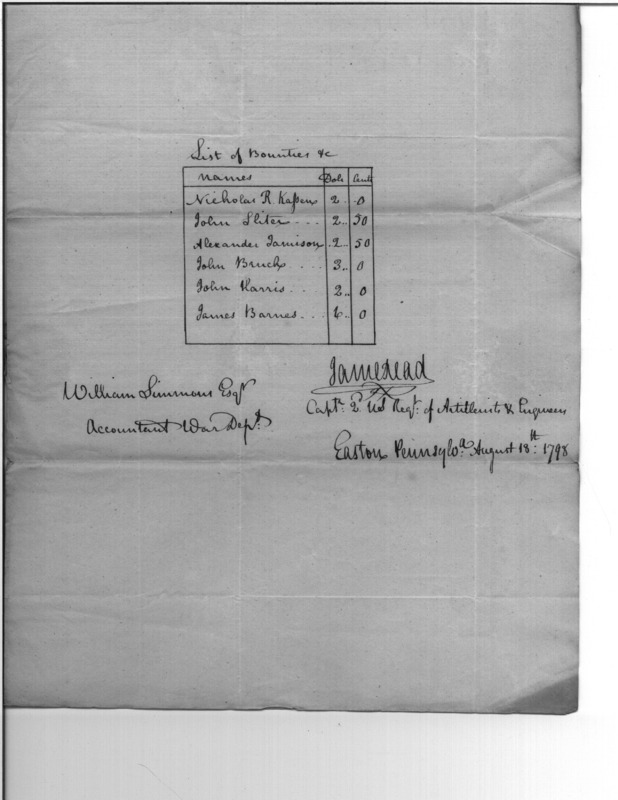 List of Bounties &c
Names Dols Cents
Nicholas R. Kaſsens 2 .. 0
John Sliter ... 2 .. 50
Alexander Jamison .. 2 .. 50
John Bruch .... 3 .. 0
John Harris ... 2 .. 0
James Barnes ... 6 .. 0
James Read
William Simmons Esqr. Captn. 2d. US Regt. of Artillerists & Engineers
Accountant War Dept.
Easton Pennsylva. August 18th. 1798